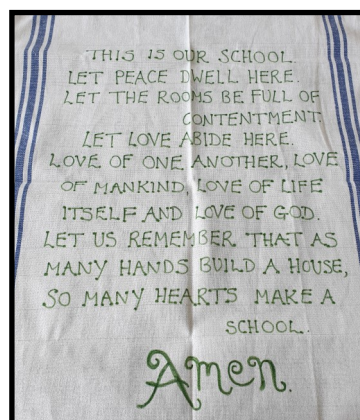 THIS IS OUR SCHOOL.
LET PEACE DWELL HERE.
LET THE ROOMS BE FULL OF
CONTENTMENT.
LET LOVE ABIDE HERE.
LOVE OF ONE ANOTHER, LOVE
OF MANKIND, LOVE OF LIFE
ITSELF AND LOVE OF GOD.
LET US REMEMBER THAT AS
MANY HANDS BUILD A HOUSE,
SO MANY HEARTS MAKE A
SCHOOL.
Amen.